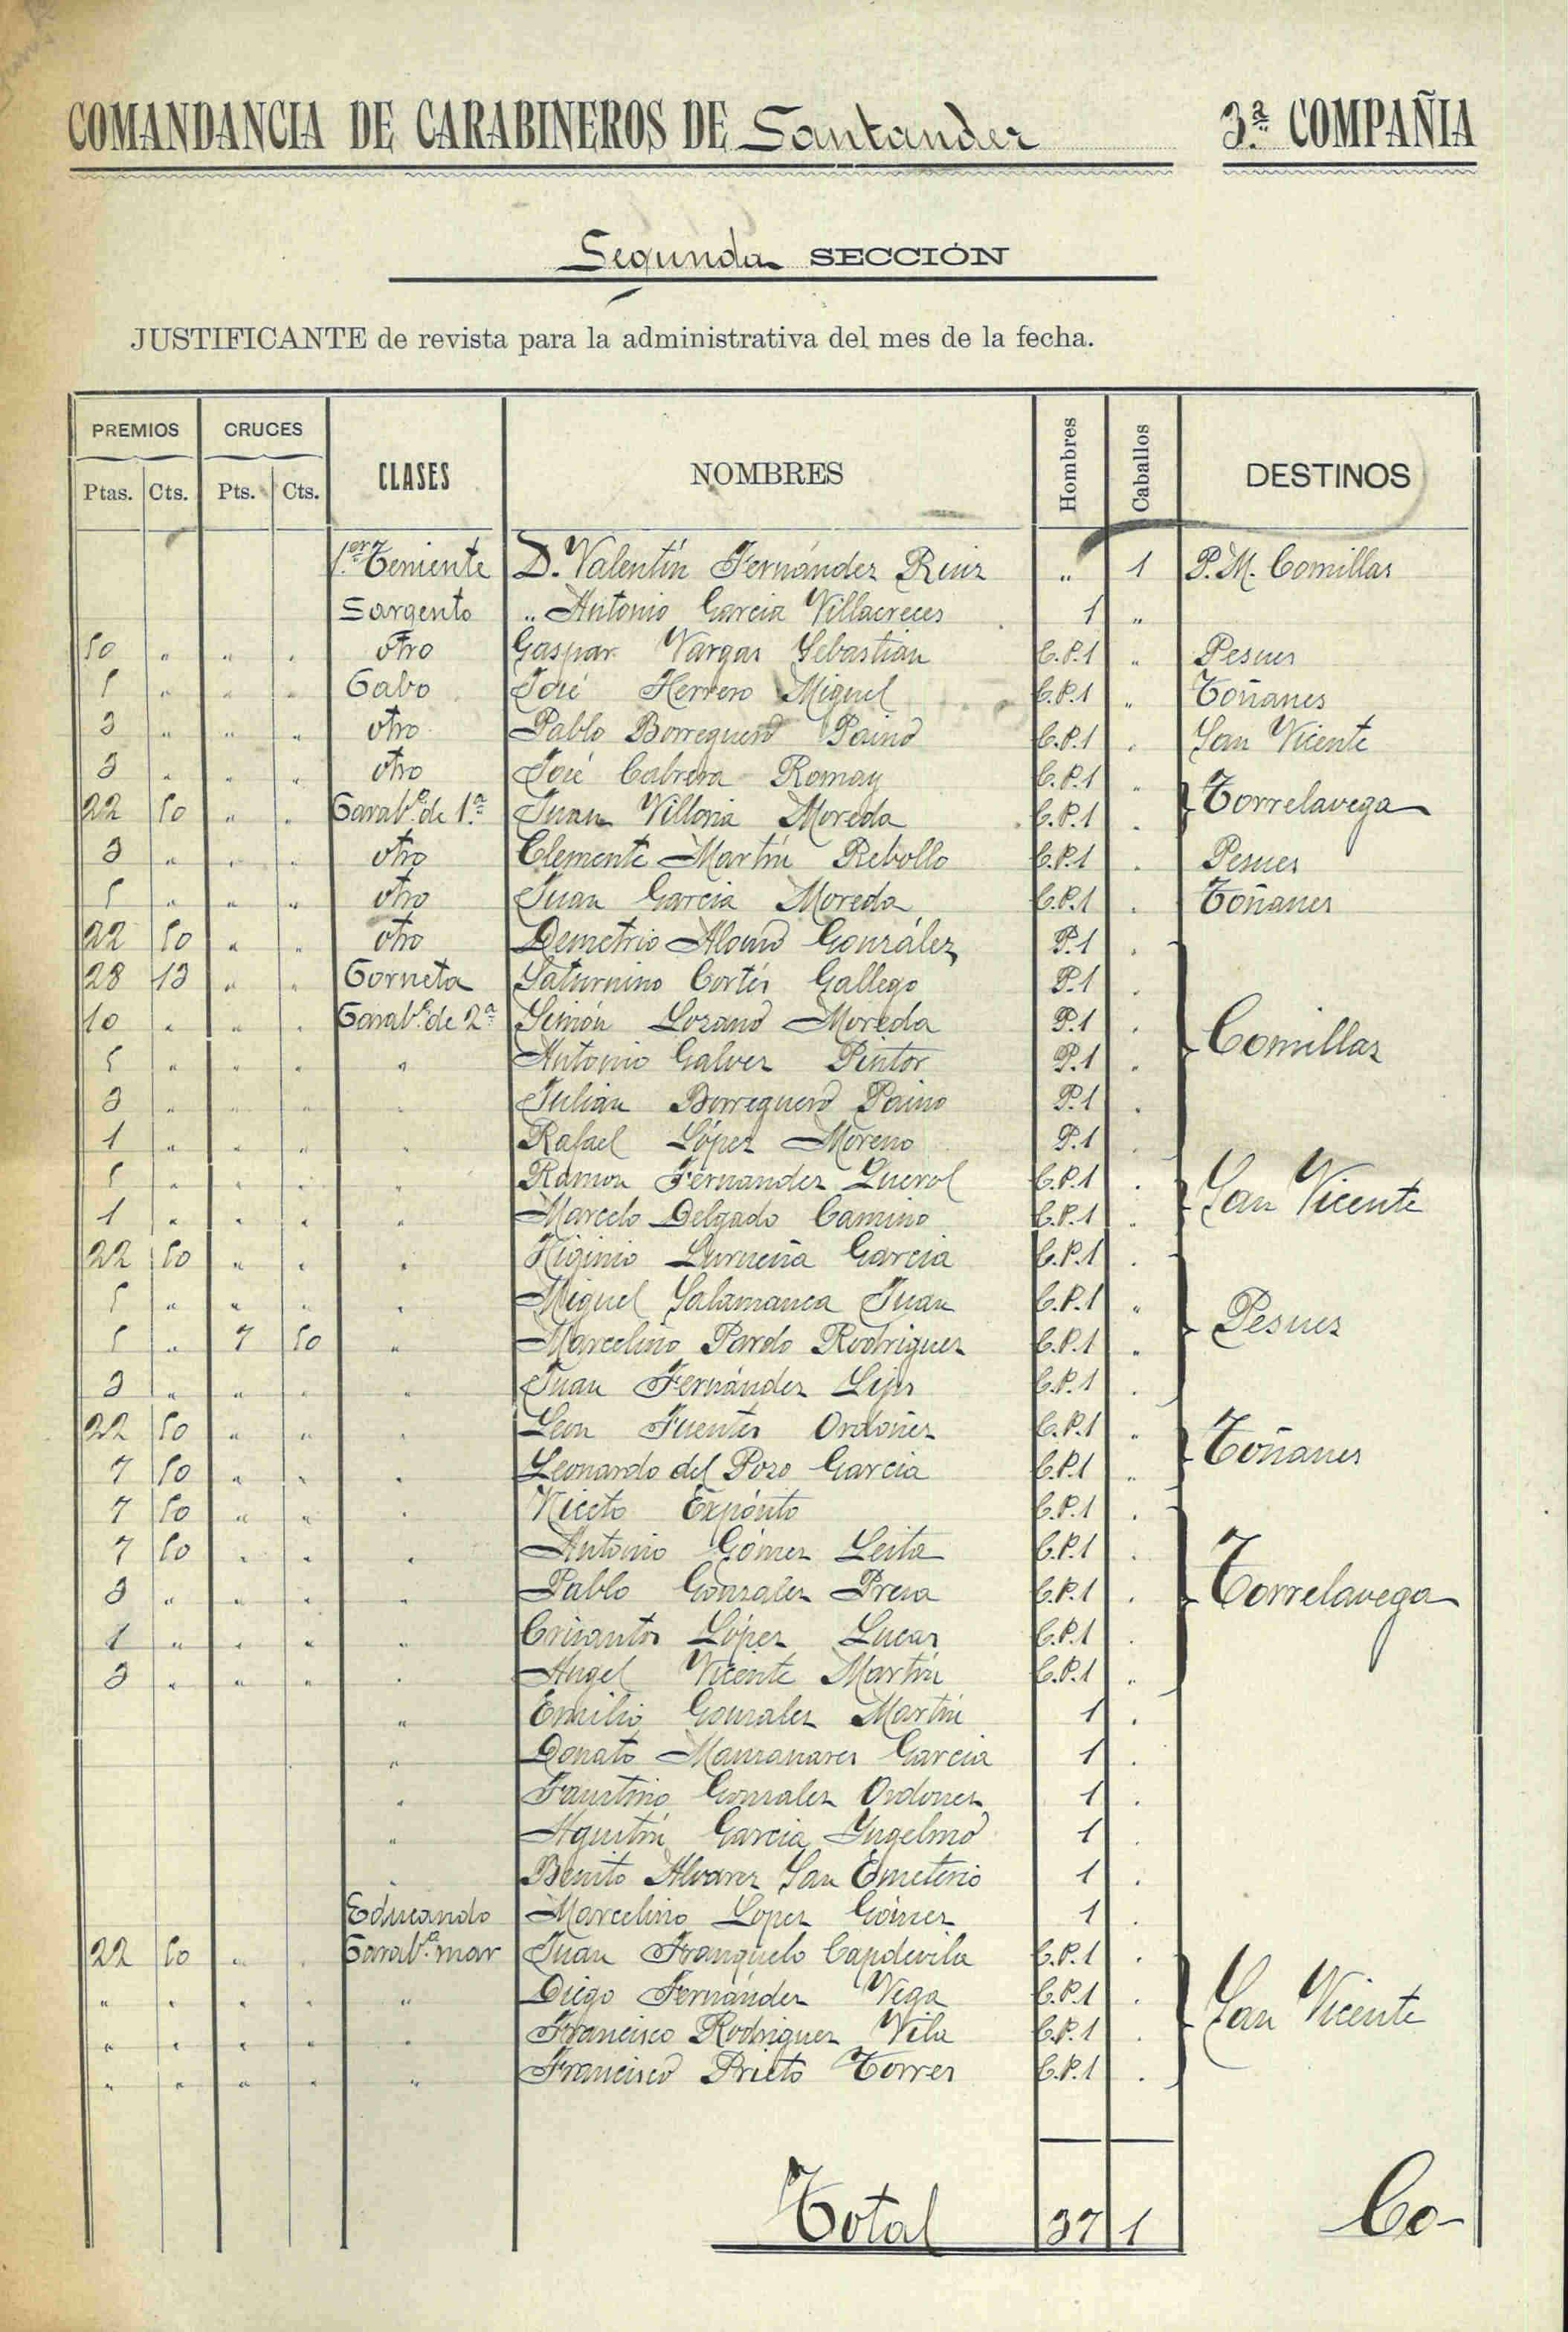 COMANDANCIA DE CARABINEROS DE Santander 3.ª COMPAÑIA
Segunda SECCIÓN
JUSTIFICANTE de revista para la administrativa del mes de la fecha.
PREMIOS CRUCES CLASES NOMBRES Hombres Caballos DESTINOS
Ptas. Cts. Pts. Cts.
1.er Teniente D. Valentín Fernández Ruiz " 1 P.M. Comillas
Sargento " Antonio Garcia Villacreces 1 "
50 " " " otro Gaspar Vargas Sebastian C.P.1 " Pesues
5 " " " Cabo José Herrero Miguel C.P.1 " Toñanes
3 " " " otro Pablo Borreguero Paino C.P.1 " San Vicente
3 " " " otro José Cabrera Romay C.P.1 "
22 50 " " Carab.º de 1.ª Juan Villoria Moreda C.P.1 " Torrelavega
3 " " " otro Clemente Martín Rebollo C.P.1 " Pesues
5 " " " otro Juan Garcia Moreda C.P.1 " Toñanes
22 50 " " otro Demetrio Alonso González P.1 "
28 13 " " Corneta Saturnino Cortés Gallego P.1 "
10 " " " Carab.º de 2ª Simón Lozano Moreda P.1 " Comillas
5 " " " " Antonio Galvez Pintor P.1 "
3 " " " " Julián Borreguero Paino P.1 "
1 " " " " Rafael López Moreno P.1 "
5 " " " " Ramon Fernandez C.P.1 "
1 " " " " Marcelo Delgado Camino C.P.1 " San Vicente
22 50 " " " Higinio Garcia C.P.1 "
5 " " " " Miguel Salamanca Juan C.P.1 "
5 " 7 50 " Marcelino Pardo Rodriguez C.P.1 " Pesues
3 " " " " Juan Fernández C.P.1 "
22 50 " " " Leon Fuentes Ordoñez C.P.1 "
7 50 " " " Leonardo del Pozo Garcia C.P.1 " Toñanes
7 50 " " " Niceto Expósito C.P.1 "
7 50 " " " Antonio Gómez Leita C.P.1 "
3 " " " " Pablo Gonzalez Presa C.P.1 " Torrelavega
1 " " " " Crisantos López Lucas C.P.1 "
3 " " " " Angel Vicente Martín C.P.1 "
" Emilio Gonzalez Martín 1 "
" Donato Manzanares Garcia 1 "
" Faustino Gonzalez Ordonez 1 "
" Agustín Garcia Yugelmo 1 "
" Benito Alvarez San Emeterio 1 "
Educando Marcelino Lopez Gómez 1 "
22 50 " " Carab.º mar Juan Franquelo Capdevila C.P.1 "
" " " " " Diego Fernández Vega C.P.1 " San Vicente
" " " " " Francisco Rodriguez Vila C.P.1 "
" " " " " Francisco Prieto Torres C.P.1 "
Total 37 1 Co-